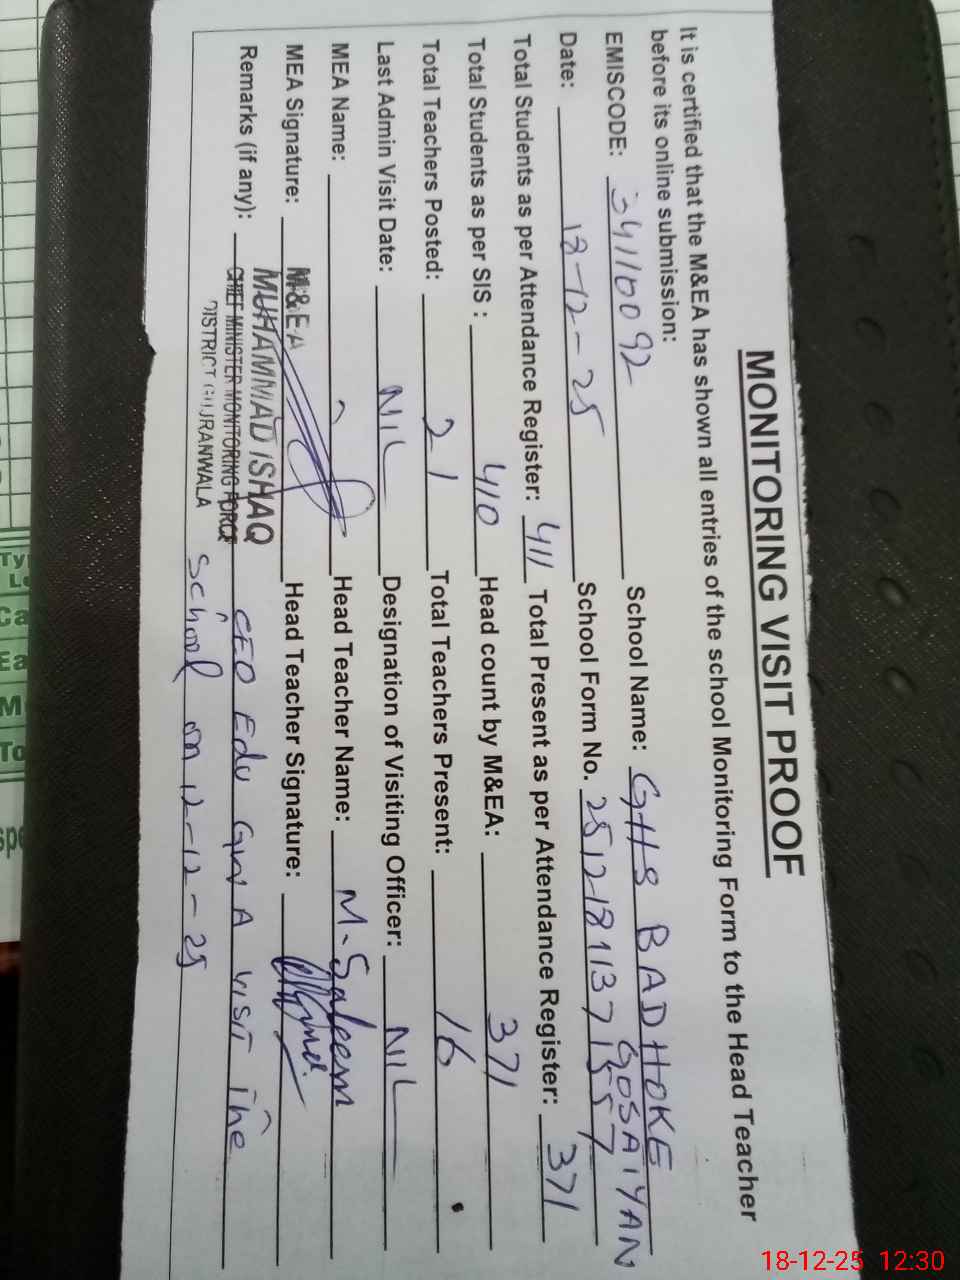 MONITORING VISIT PROOF
It is certified that the M&EA has shown all entries of the school Monitoring Form to the Head Teacher
before its online submission:
EMISCODE: 34110092 School Name: GHS BADHOKE GOSAIYAN
Date: 18-12-25 School Form No. 25121811371557
Total Students as per Attendance Register: 411 Total Present as per Attendance Register: 371
Total Students as per SIS : 410 Head count by M&EA: 371
Total Teachers Posted: 21 Total Teachers Present: 16
Last Admin Visit Date: NIL Designation of Visiting Officer: NIL
MEA Name: Head Teacher Name: M. Saleem
MEA Signature: M&EA Head Teacher Signature:
MUHAMMAD ISHAQ
Remarks (if any): CEO Edu GWA visit the
CHIEF MINISTER MONITORING FORCE
DISTRICT GUJRANWALA
School on 12-12-25
Ty
Ca
Ea
M
To
18-12-25 12:30